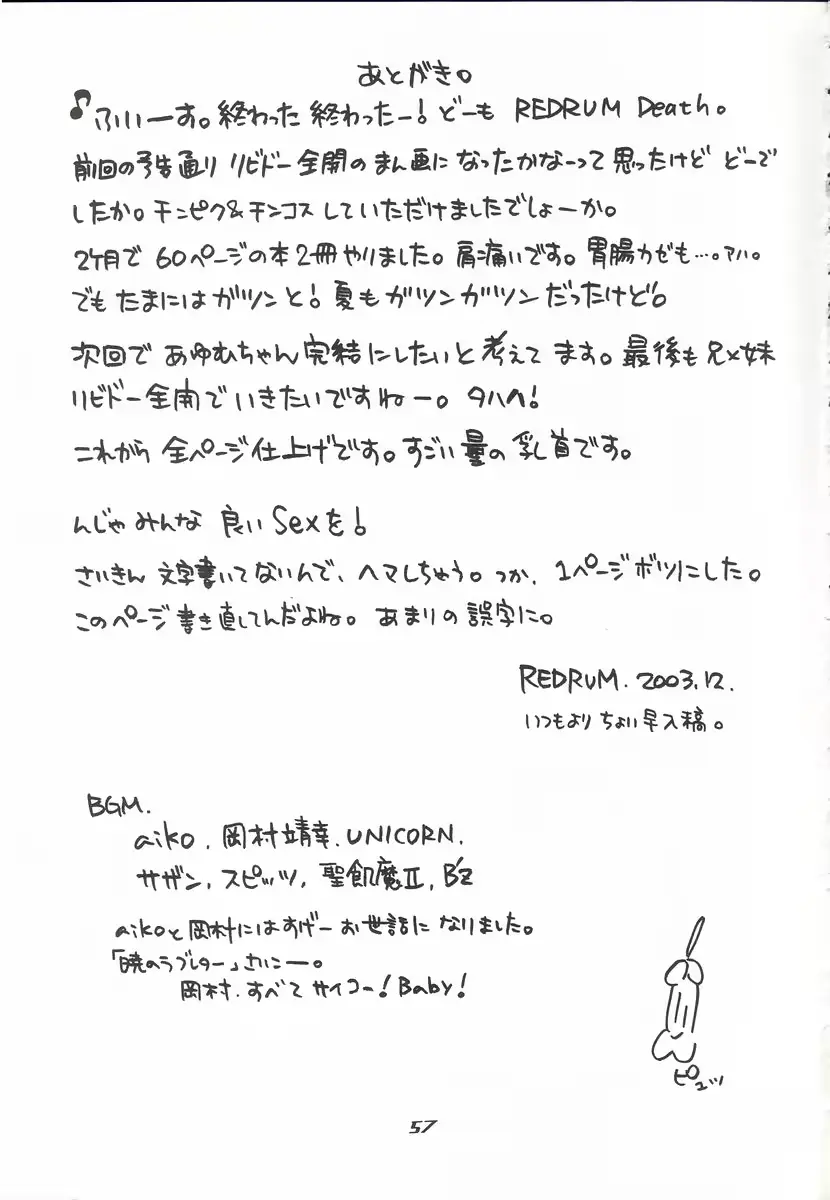 あとがき。
♪ふいーす。終わった終わったー!どーも REDRUM Death。
前回の予告通り リビドー全開のまん画になったかなーって思ったけど どーで
したか。チンピク&チンコスしていただけましたでしょーか。
2ヶ月で 60ページの本2冊やりました。肩痛いです。胃腸カゼも…。アハ。
でもたまにはガツンと!夏もガツンガツンだったけど。
次回で あゆむちゃん完結にしたいと考えてます。最後も兄×妹
リビドー全開でいきたいですねー。タハハ!
これから 全ページ仕上げです。すごい量の乳首です。
んじゃみんな 良いSexを!
さいきん 文字書いてないんで、ヘマしちゃう。つか、1ページボツにした。
このページ書き直してんだよね。あまりの誤字に。
REDRUM. 2003.12.
いつもより ちょい早入稿。
BGM.
aiko. 岡村靖幸. UNICORN.
サザン, スピッツ, 聖飢魔II, B'z
aikoと岡村にはすげーお世話になりました。
「暁のラブレター」さいこー。
岡村. すべてサイコー! Baby!
ピュッ
57